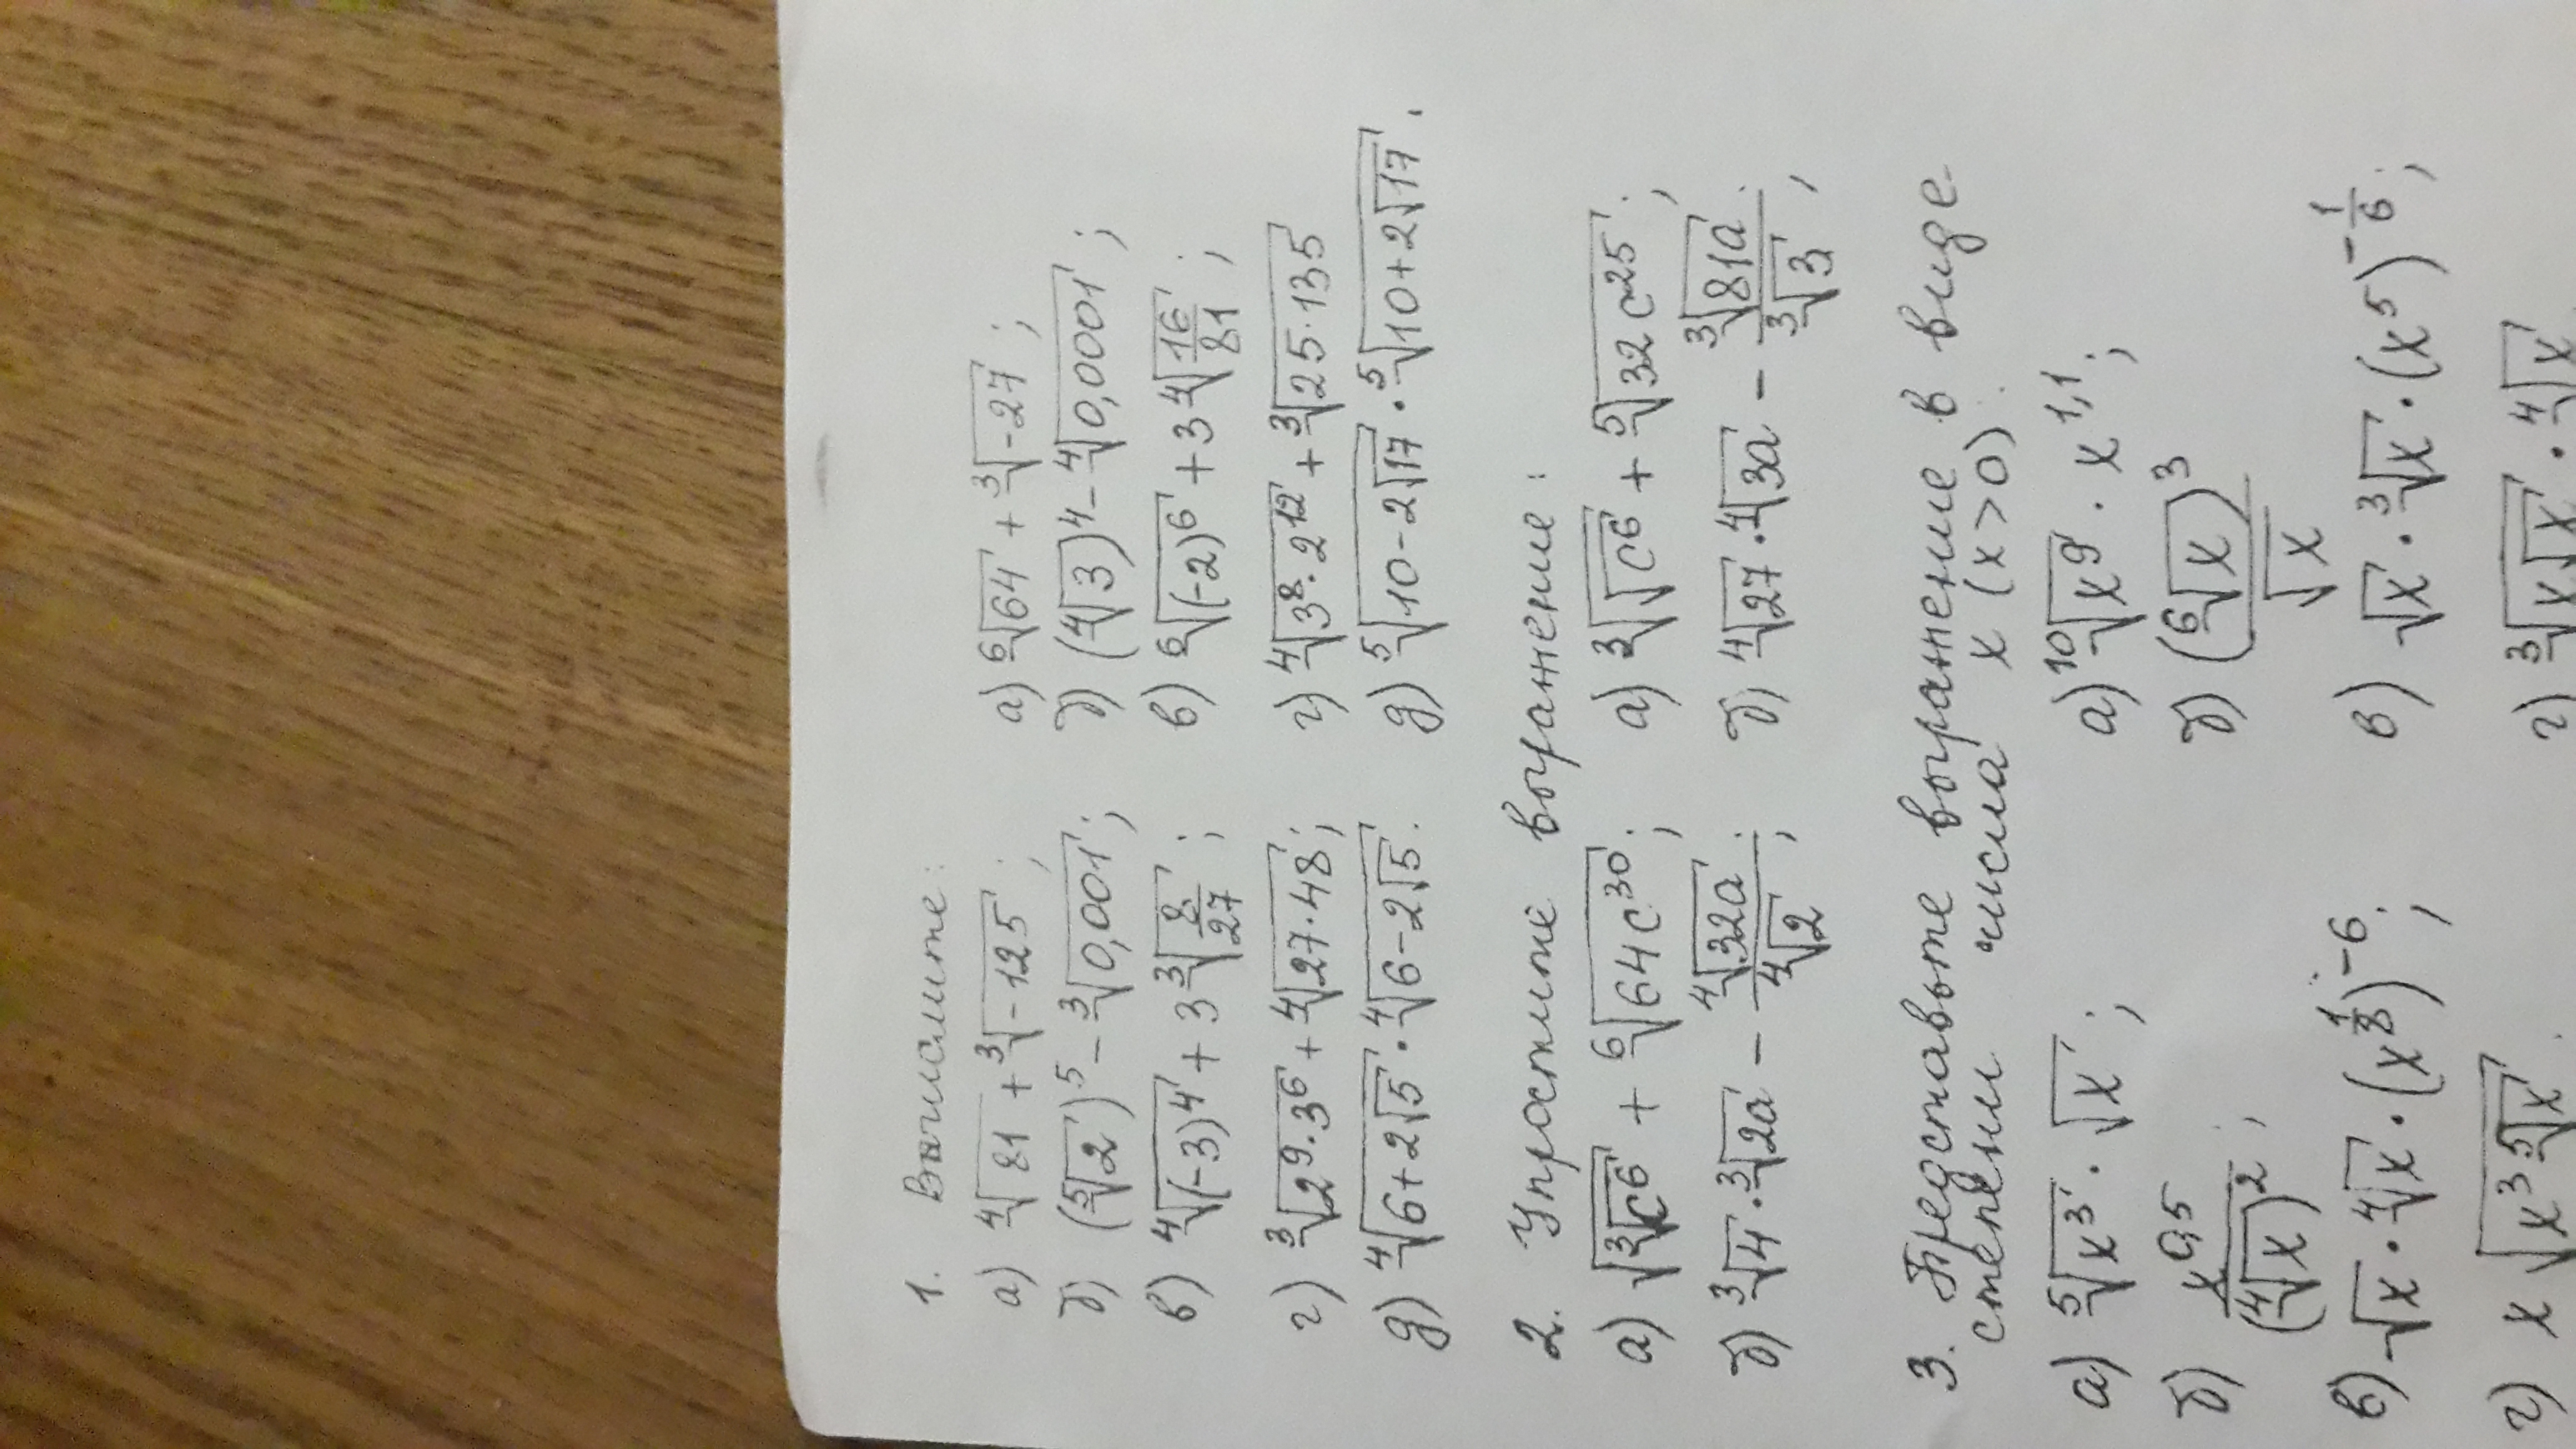 1. Вычислите:
а) ⁴√81 + ³√-125; а) ⁶√64 + ³√-27;
б) (⁵√2)⁵ - ³√0,001; б) (⁴√3)⁴ - ⁴√0,0001;
в) ⁴√(-3)⁴ + 3 ³√(8/27); в) ⁶√(-2)⁶ + 3 ⁴√(16/81);
г) ³√(2⁹·3⁶) + ⁴√(27·48); г) ⁴√(3⁸·2¹²) + ³√(25·135)
д) ⁴√(6+2√5) · ⁴√(6-2√5). д) ⁵√(10-2√17) · ⁵√(10+2√17).
2. Упростите выражение:
а) √(³√c⁶) + ⁶√(64c³⁰); а) ³√(√c⁶) + ⁵√(32c²⁵);
б) ³√4 · ³√2a - ⁴√32a / ⁴√2; б) ⁴√27 · ⁴√3a - ³√81a / ³√3;
3. Представьте выражение в виде
степени числа x (x>0).
а) ⁵√x³ · √x; а) ¹⁰√x⁹ · x^1,1;
б) x^0,5 / (⁴√x)²; б) (⁶√x)³ / √x
в) √x · ⁴√x · (x^(1/8))^-6; в) √x · ³√x · (x⁵)^(-1/6);
г) x √(x³ ⁵√x). г) ³√(x√x) · ⁴√x